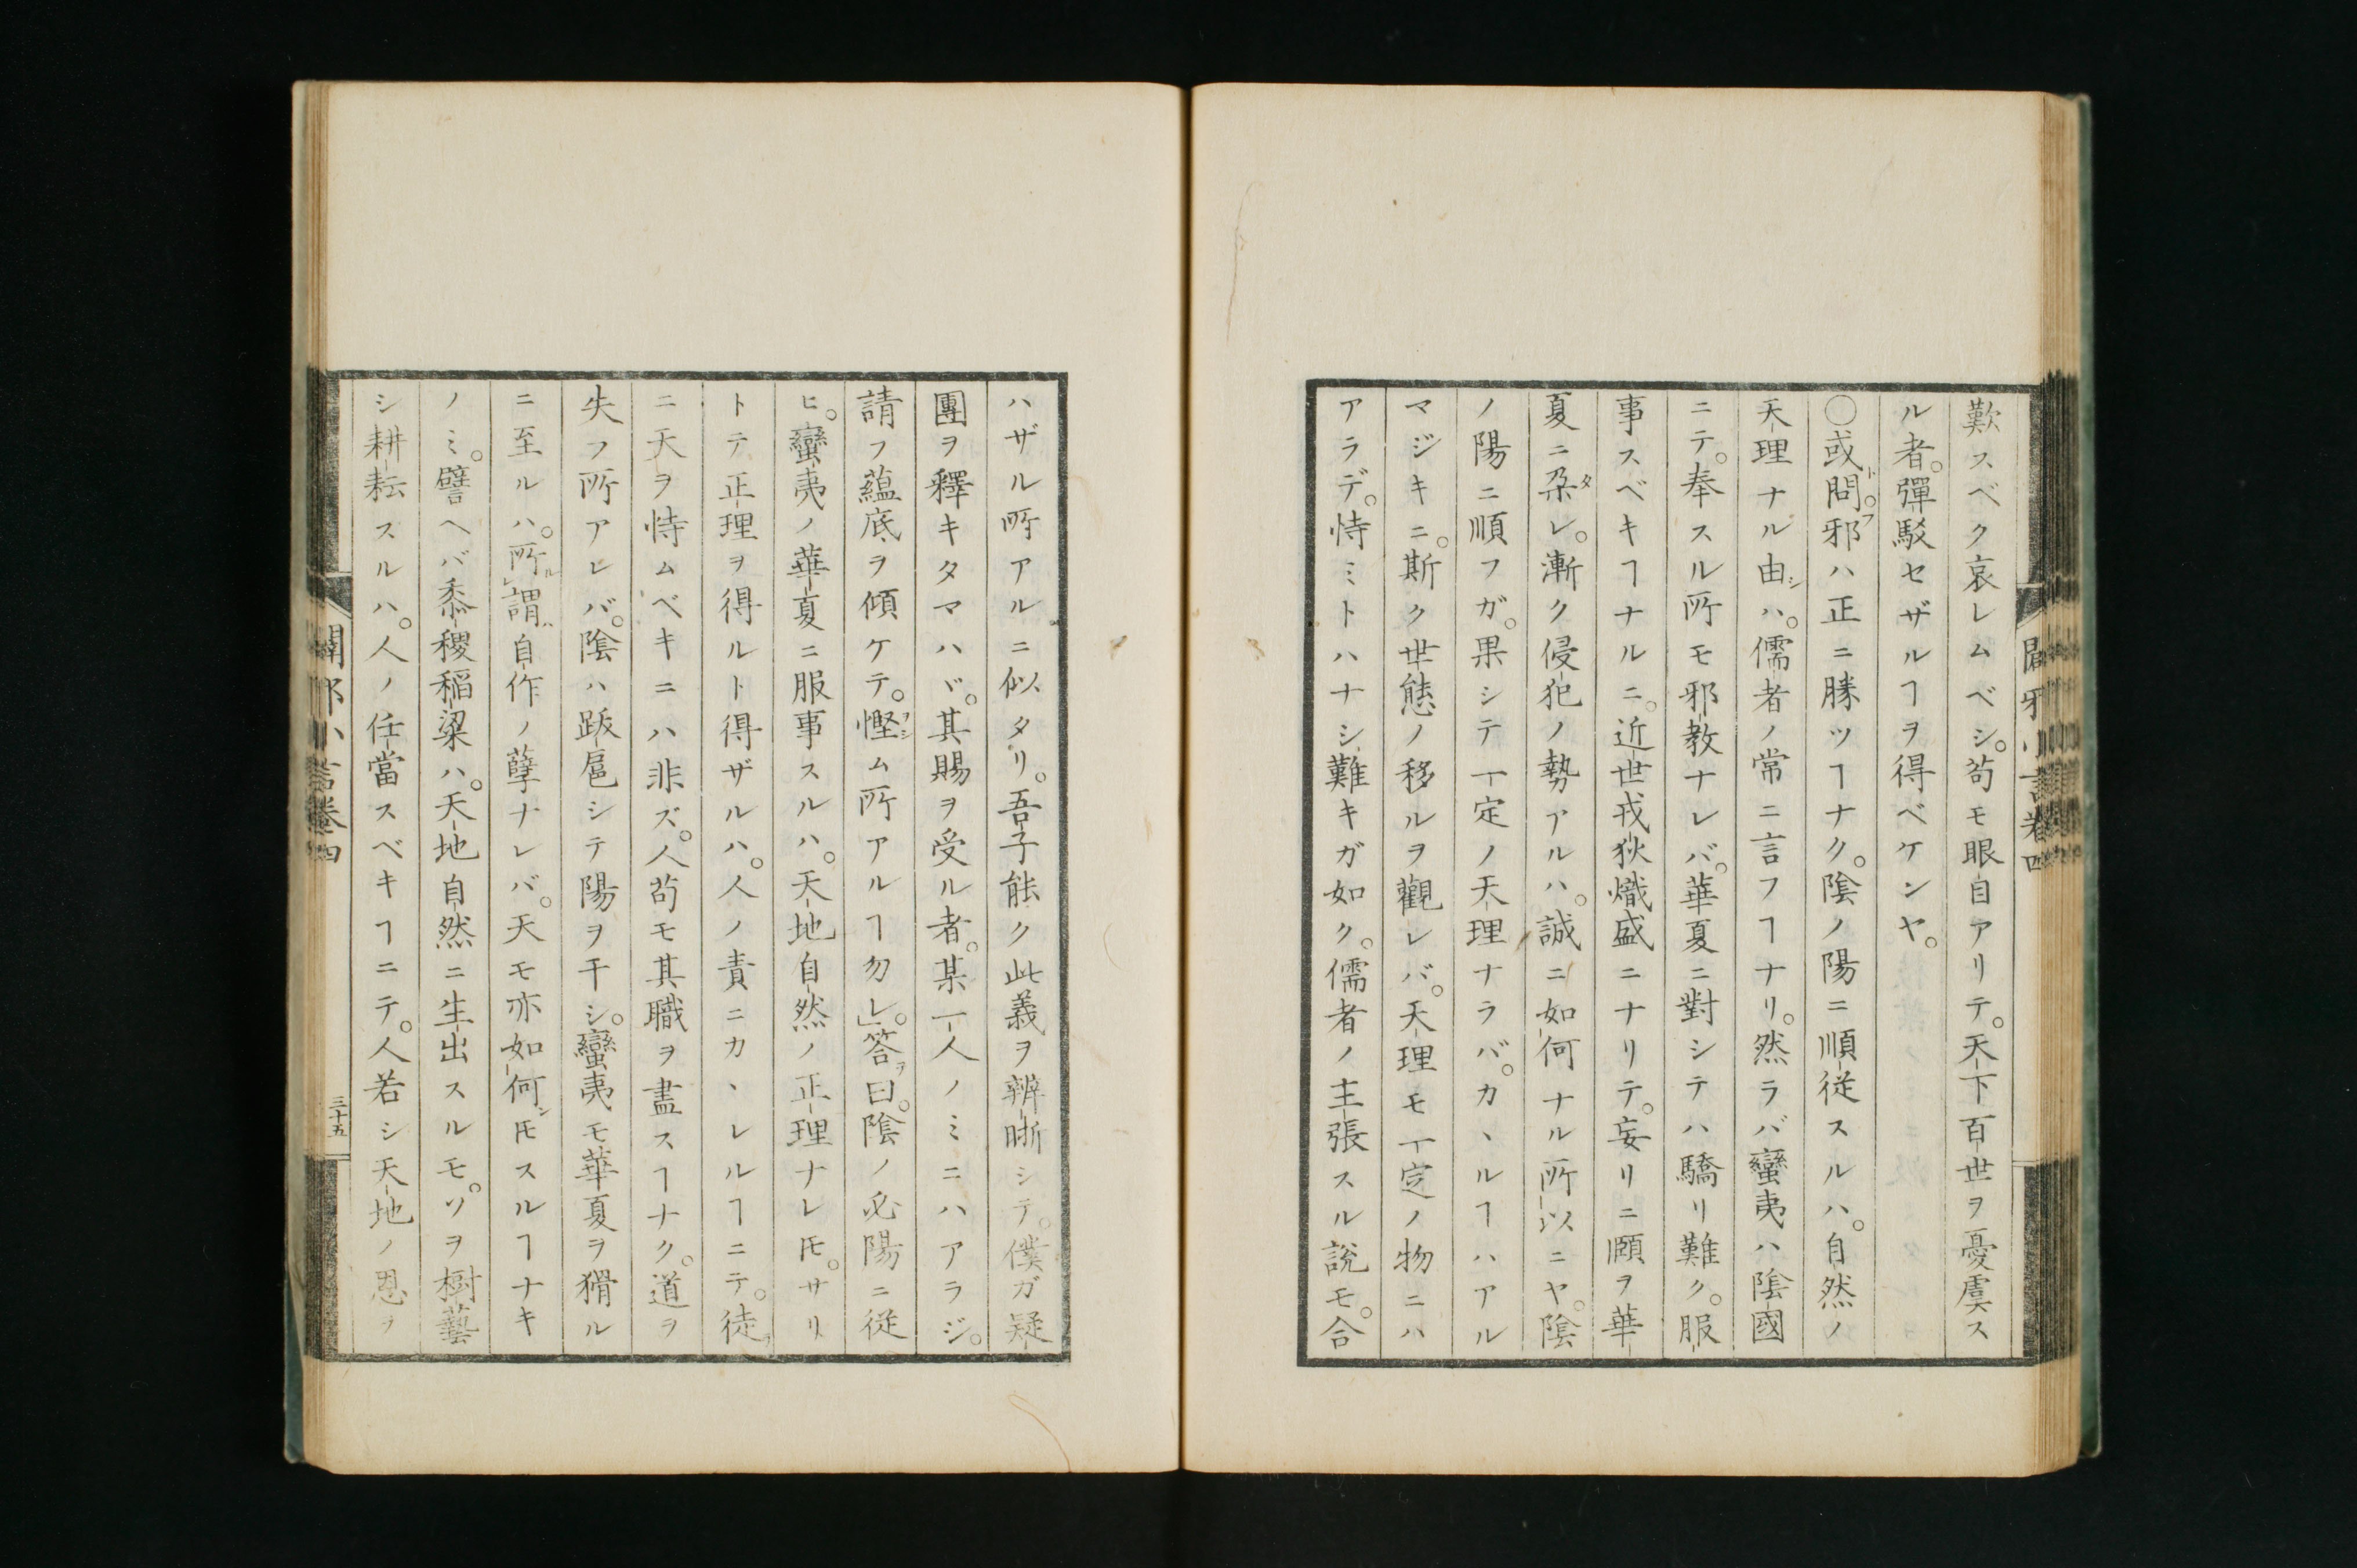 歎スベク哀レムベシ。苟モ眼目アリテ。天下百世ヲ憂虞ス
ル者。彈駁セザルヿヲ得ベケンヤ。
○或問。邪ハ正ニ勝ツヿナク。陰ノ陽ニ順從スルハ。自然ノ
天理ナル由ハ。儒者ノ常ニ言フヿナリ。然ラバ蠻夷ハ陰國
ニテ。奉スル所モ邪教ナレバ。華夏ニ對シテハ驕リ難ク。服
事スベキヿナルニ。近世戎狄熾盛ニナリテ。妄リニ頤ヲ華
夏ニ朶レ。漸ク侵犯ノ勢アルハ。誠ニ如何ナル所以ニヤ。陰
ノ陽ニ順フガ。果シテ一定ノ天理ナラバ。カヽルヿハアル
マジキニ。斯ク世態ノ移ルヲ觀レバ。天理モ一定ノ物ニハ
アラデ。恃ミトハナシ難キガ如ク。儒者ノ主張スル説モ。合
ハザル所アルニ似タリ。吾子能ク此義ヲ辨晣シテ。僕ガ疑
團ヲ釋キタマハヾ。其賜ヲ受ル者。某一人ノミニハアラジ。
請フ蘊底ヲ傾ケテ。慳ム所アルヿ勿レ」答曰。陰ノ必陽ニ從
ヒ。蠻夷ノ華夏ニ服事スルハ。天地自然ノ正理ナレ𪜈。サリ
トテ正理ヲ得ルト得ザルハ。人ノ責ニカヽレルヿニテ。徒
ニ天ヲ恃ムベキニハ非ズ。人苟モ其職ヲ盡スヿナク。道ヲ
失フ所アレバ。陰ハ跋扈シテ陽ヲ干シ。蠻夷モ華夏ヲ猾ル
ニ至ルハ。所謂自作ノ孽ナレバ。天モ亦如何𪜈スルヿナキ
ノミ。譬ヘバ黍稷稲粱ハ。天地自然ニ生出スルモ。ソヲ樹藝
シ耕耘スルハ。人ノ任當スベキヿニテ。人若シ天地ノ恩ヲ
闢邪小言卷四
三十五